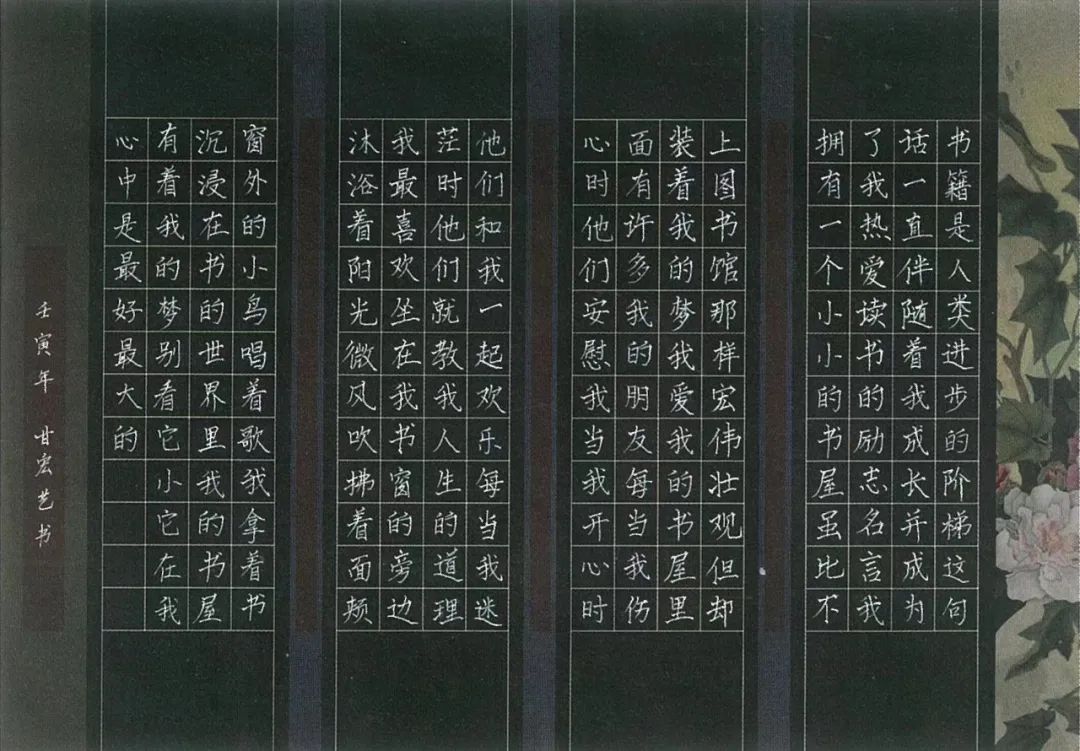 书籍是人类进步的阶梯这句
话一直伴随着我成长并成为
了我热爱读书的励志名言我
拥有一个小小的书屋虽比不
上图书馆那样宏伟壮观但却
装着我的梦我爱我的书屋里
面有许多我的朋友每当我伤
心时他们安慰我当我开心时
他们和我一起欢乐每当我迷
茫时他们就教我人生的道理
我最喜欢坐在我书窗的旁边
沐浴着阳光微风吹拂着面颊
窗外的小鸟唱着歌我拿着书
沉浸在书的世界里我的书屋
有着我的梦别看它小它在我
心中是最好最大的
壬寅年 甘宏艺书